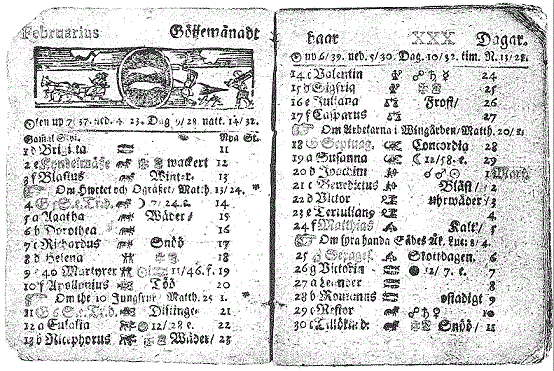 Februarius Göijemånadt
Solen up 7/37. ned. 4/23. Dag 9/28. natt. 14/32.
Gamal Styl. Nya St.
1 d Brigita 11
2 e Kyndelmässe wackert 12
3 f Blasius Winter. 13
Om Hwetet och Ogräset/ Matth. 13/24.
4 14
5 a Agatha Wäder/ 15
6 b Dorothea 16
7 c Richardus Snöö 17
8 d Helena 18
9 e 40 Martyrer 11/46. f. 19
10 f Apollonius Töö 20
Om the 10 Jungfrur Matth. 25 1.
11 Distinge 21
12 a Eulalia 12/28 e. 22
13 b Nicephorus Wäder/ 23
haar XXX Dagar.
up 6/39. ned. 5/30. Dag. 10/32. tim. N. 13/28.
14 c Valentin 24
15 d Sigfrid 25
16 e Juliana Frost/ 26
17 f Casparus 27
Om Arbetarna i Wingården/ Matth. 20/
18 Septuag. Concordia 28
19 a Susanna 12/58. e. 29
20 b Joachim 1 Mart.
21 c Benedictus Blåst/ 2
22 d Victor uhrwäder/ 3
23 e Tertulliany 4
24 f Matthias Kalt/ 5
Om fyra handa Sädes Åk. Luc. 8/4.
25 Sexages. Skottdagen. 6
26 g Victorin 12/7. e. 7
27 a Leander 8
28 b Romanus ostadigt 9
29 c Nestor 10
30 c Tillökad. Snöö/ 11